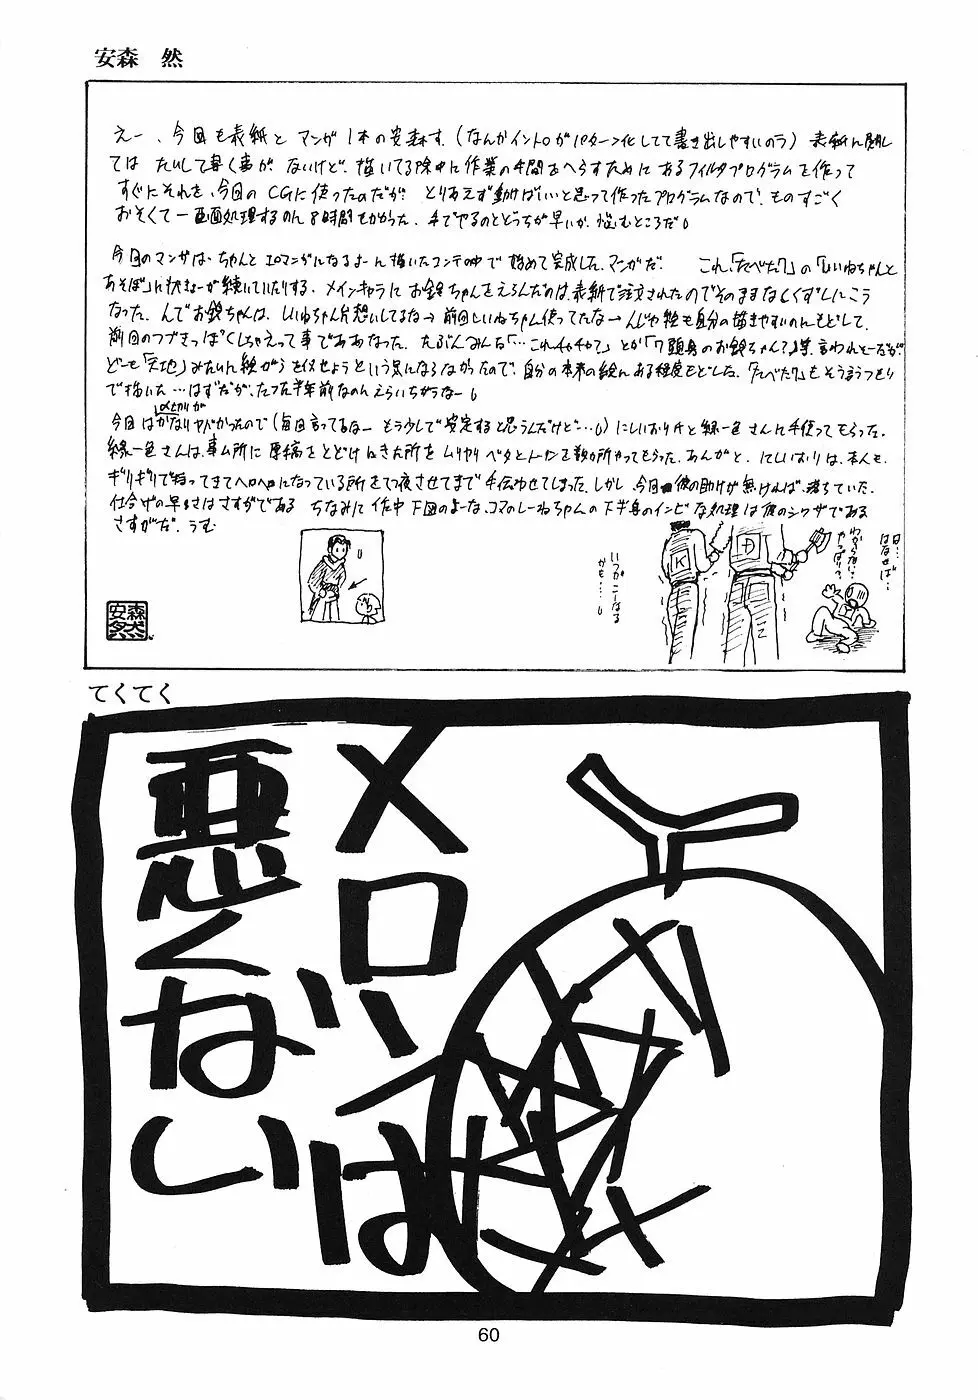 安森 然
えー、今回も表紙とマンガ1本の安森す。(なんかイントロがパターン化してて書き出しやすいのう) 表紙に関し
ては たいして書く事が ないけど、描いてる険中に作業の手間をへらすために あるフィルタプログラムを作って
すぐにそれを、今回の CGに使ったのだが とりあえず動けばいいと思って作ったプログラムなので、ものすごく
おそくて一画面処理するのに8時間もかかった。手でやるのとどっちが早いか、悩むところだ。
今回のマンガは、ちゃんと エロマンガになるよーに描いたコンテの中で 始めて完成したマンガだ。 これ、「たべた?」の「しいねちゃんと
あそぼ」に 続いていたりする。メインキャラに お鈴ちゃんをえらんだのは、表紙で注文されたのでそのままなしくずしにこう
なった。んでお鈴ちゃんは、しいねちゃん片想いしてるな→前回しいねちゃん使ってたな→んじゃ絵も自分の描きやすいのにもどして、
前回のつづきっぽくしちゃえって事でああなった。たぶんみんな「…これチャチャ?」とか「7頭身のお鈴ちゃん?」等、言われそーだが
どーも「天地」みたいに絵がらを似せようという気にならなかったので、自分の本来の絵にある程度もどした。「たべた?」もそうるうつもり
で描いた…はずだが、たった半年前なのにえらいちがうなー
〆切りが
今回はかなりヤバかったので(毎回言ってるなー もう少しで安定すると思うんだけど…)にしいおりんと緑一色さんに手伝ってもらった。
緑一色さんは、事ム所に原稿をとどけにきた所をムリやりベタとトーンを数か所やってもらった。ありがと、にしいおりは、本人も、
ギリギリで持ってきてヘロヘロになっている所をてつ夜させてまで手伝わせてしまった。しかし、今回彼の助けが無ければ、落ちていた。
仕合げの早さはさすがである ちなみに作中下図のよーな、コマのしーねちゃんの下半身のインビな処理は彼のシワザである
さすがだ。うむ
いつかこーなる
かも…
K
D
Z
わからない…
やっぱり?
はなせば…
安森
然
てくてく
メロンは
悪くない
60